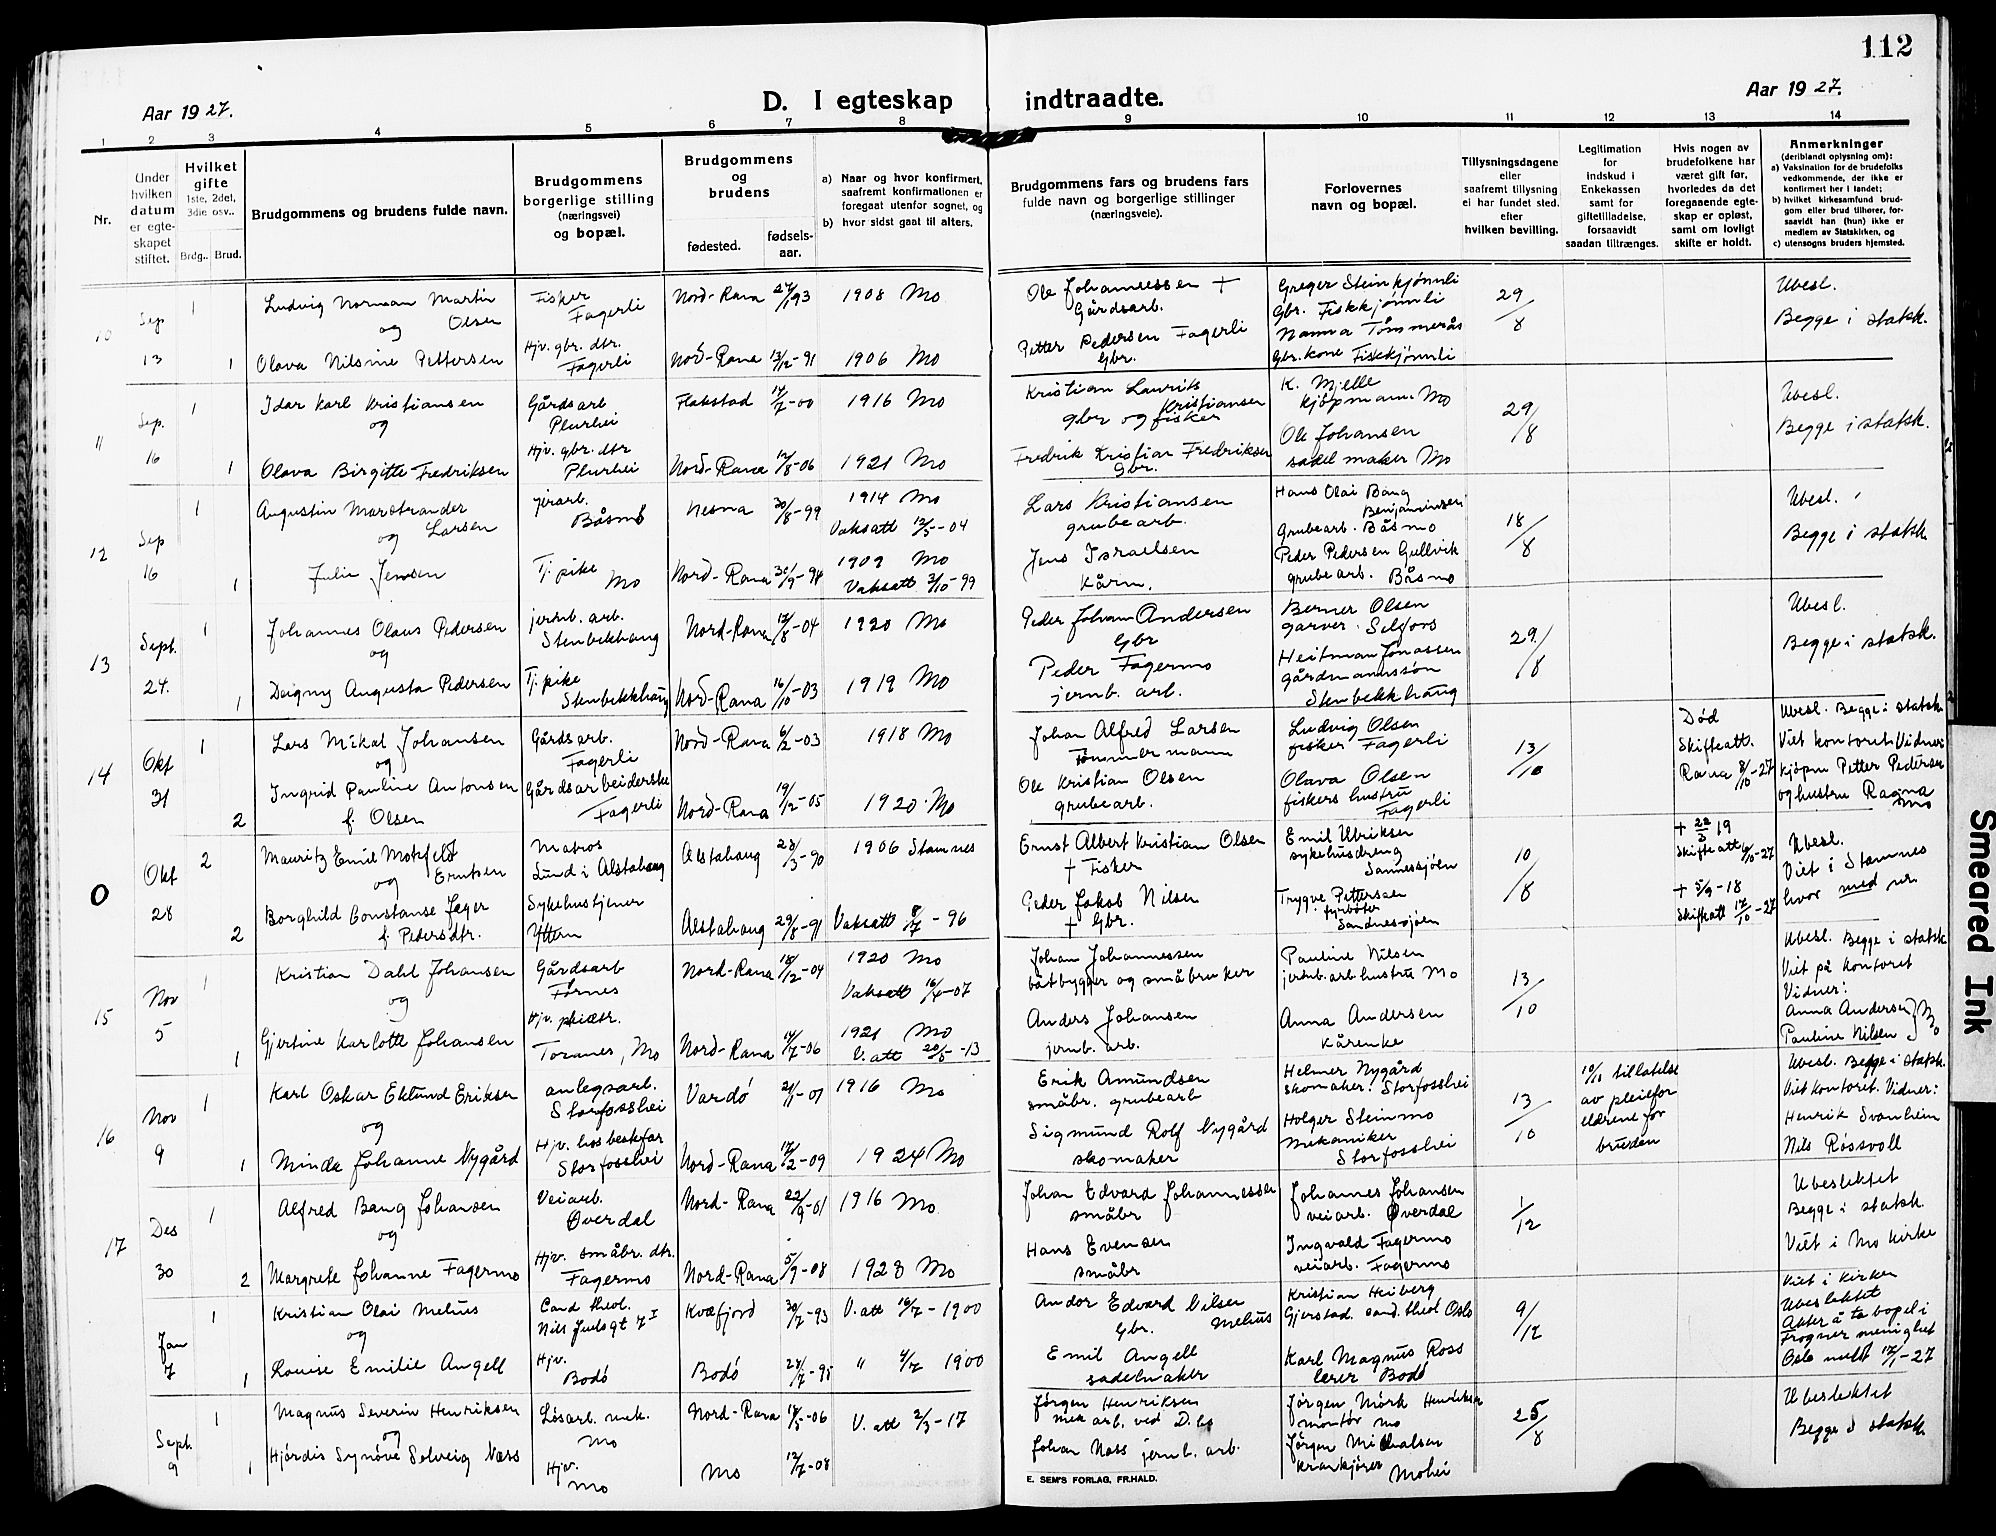 112
Aar 1927.
D. I egteskap indtraadte.
Aar 1927.
1 2 3 4 5 6 7 8 9 10 11 12 13 14
Nr.
Under hvilken datum er egteskapet stiftet.
Hvilket gifte 1ste, 2del, 3die osv..
Brdg.. Brud.
Brudgommens og brudens fulde navn.
Brudgommens borgerlige stilling (næringsvei) og bopæl.
Brudgommens og brudens
fødested. fødselsaar.
a) Naar og hvor konfirmert, saafremt konfirmationen er foregaat utenfor sognet, og
b) hvor sidst gaat til alters.
Brudgommens fars og brudens fars fulde navn og borgerlige stillinger (næringsveie).
Forlovernes navn og bopæl.
Tillysningsdagene eller saafremt tillysning ei har fundet sted. efter hvilken bevilling.
Legitimation for indskud i Enkekassen samt for giftetilladelse, forsaavidt saadan tiltrænges.
Hvis nogen av brudefolkene har været gift før, hvorledes da det foregaaende egteskap er opløst, samt om lovligt skifte er holdt.
Anmerkninger
(deriblandt oplysning om):
a) Vaksination for de brudefolks vedkommende, der ikke er konfirmert her i landet;
b) hvilket kirkesamfund brudgom eller brud tilhører, forsaavidt han (hun) ikke er medlem av Statskirken, og
c) utensogns bruders hjemsted.
10 Sep 13 1 Ludvig Norman Martin Olsen og Fisker Fagerli Nord-Rana 1908 Mo Ole Johannessen + Gårdsarb. Greger Steinkjønnli Gbr. Fiskkjønnli 29/8 Ubesl. Begge i statsk.
1 Olava Nilsine Pettersen Hjv. gbr. dtr. Fagerli Nord-Rana 13/12-91 1906 Mo Petter Pedersen Fagerli Gbr. Nanna Tømmerås Gbr. kone Fiskkjønnli
11 Sep. 16 1 Idar Karl Kristiansen og Gårdsarb Plurhei Flakstad 17/7-00 1916 Mo Kristian Laurits Kristiansen gbr og fisker K. Mjelle kjøpmann Mo 29/8 Ubesl. Begge i statsk.
1 Olava Birgitte Fredriksen Hjv. gbr. dtr Plurhei Nord-Rana 12/8-06 1921 Mo Fredrik Kristian Fredriksen Gbr. Ole Johansen sadelmaker Mo
12 Sep 16 1 Augustin Marstrander Larsen og jernarb. Båsmo Nesna 30/8-99 1914 Mo Vaksatt 12/5-04 Lars Kristiansen grubearb. Hans Olai Bang Benjaminsen Grubearb. Båsmo 18/8 Ubesl. Begge i statsk.
1 Julie Jensen Tj. pike Mo Nord-Rana 30/9-94 1909 Mo Vaksatt 3/10-99 Jens Israelsen Kårm. Peder Pedersen Gullvik grubearb. Båsmo
13 Sept. 24. 1 Johannes Olaus Pedersen og jernb. arb. Stenbekkhaug Nord-Rana 12/8-04 1920 Mo Peder Johan Andersen Gbr Berner Olsen garver Selfors 29/8 Ubesl. Begge i statsk.
1 Dagny Augusta Pedersen Tj. pike Stenbekkhaug Nord-Rana 16/10-03 1919 Mo Peder Fagermo jernb. arb. Heitman Jonassen gårdmannssøn Stenbekkhaug
14 Okt 31 1 Lars Mikal Johansen og Gårdsarb. Fagerli Nord-Rana 6/2-03 1918 Mo Johan Alfred Larsen Tømmermann Ludvig Olsen fisker Fagerli 13/10 Død Skifteatt. Rana 8/10-27 Ubesl. Begge i statsk. Viet kontoret. Vidner: kjøpm Petter Pedersen og hustru Ragna Mo
2 Ingrid Pauline Antonsen f. Olsen Gårdsarbeiderske Fagerli Nord-Rana 19/12-05 1920 Mo Ole Kristian Olsen grubearb. Olava Olsen fiskers hustru Fagerli
0 Okt 28 2 Mauritz Emil Motzfeld Erntsen og Matros Sund i Alstahaug Alstahaug 28/3-90 1906 Stamnes Ernst Albert Kristian Olsen + Fisker Emil Ulriksen sykehusdreng Sannessjøen 10/8 + 22/3 19 Skifteatt 6/10-27 Ubesl. Viet i Stamnes hvor med nr
2 Borghild Constanse Jæger f. Pedersdtr. Sykehustjener Yttern Alstahaug 29/8-91 Vaksatt 8/7-96 Peder Jakob Nilsen + Gbr. Trygve Pettersen fyrbøter Sandnessjøen + 5/9-18 Skifteatt 17/10-27
15 Nov 5 1 Kristian Dahl Johansen og Gårdsarb Førnes Nord-Rana 18/12-04 1920 Mo Vaksatt 16/6-07 Johan Johannessen båtbygger og småbruker Pauline Nilsen jernb.arb hustru Mo 13/10 Ubesl. Begge i statsk Viet på kontoret Vidner: Anna Andersen Pauline Nilsen } Mo
1 Gjertine Karlotte Johansen Hjv. Toranes, Mo Nord-Rana 14/7-06 1921 Mo V. att 20/5-13 Anders Johansen jernb. arb. Anna Andersen Kårenke
16 Nov 9 1 Karl Oskar Eklund Eriksen og anlegsarb. Storfosshei Vardø 1916 Mo Erik Amundsen småbr. grubearb Helmer Nygård skomaker. Storfosshei 13/10 10/11 tillatelse av pleieforeldrene for bruden Ubesl. Begge i statsk. Viet kontoret. Vidner: Henrik Svanheim Nils Røssvoll
1 Minda Johanne Nygård Hjv. hos bestefar Storfosshei Nord-Rana 17/2-09 1924 Mo Sigmund Rolf Nygård skomaker Holger Steinmo mekaniker Storfosshei
17 Des 30 1 Alfred Bang Johansen og Veiarb. Øverdal Nord-Rana 22/9-01 1916 Mo Johan Edvard Johannessen småbr Johannes Johansen veiarb. Øverdal 1/12 Ubeslektet Begge i statsk. Viet i Mo kirke
2 Margrete Johanne Fagermo Hjv. småbr. dtr. Fagermo Nord-Rana 5/9-08 1923 Mo Hans Evensen småbr Ingvald Fagermo veiarb. Fagermo
Jan 7 1 Kristian Olai Melius og Cand. theol. Nils Juelsgt 7 I Kvæfjord 30/7-93 V. att 16/7-1900 Andor Edvard Nilsen Melius Gbr. Kristian Heiberg Gjerstad. cand. theol Oslo 9/12 Viet i kirken Ubeslektet Akter å ta bopel i Frogner menighet Oslo meldt 12/1-27
1 Louise Emilie Angell Hjv. Bodø Bodø 28/7-95 " 4/7 1900 Emil Angell sadelmaker Karl Magnus Ross lærer Bodø
Sept. 9 1 Magnus Severin Henriksen og Løsarb. mek. Mo Nord-Rana 18/5-06 V. att 2/3-17 Jørgen Henriksen mek arb. ved D. Jørgen Mørk Henriksen montør Mo 25/8 Ubeslektet Begge i statsk.
1 Hjørdis Synøve Solveig Næss Hjv. Mo Mo 12/7-08 Johan Næss jernb. arb. Jørgen Michalsen krankjører Mohei
E. SEM'S FORLAG, FR.HALD.
Smeared Ink